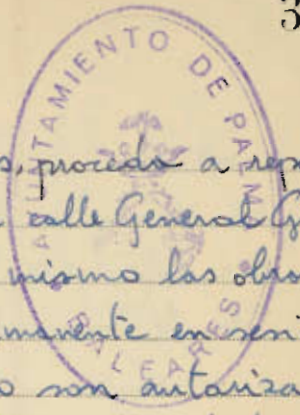 3
AYUNTAMIENTO DE PALMA
BALEARES
s, proceda a
calle General
mismo las obra
manente en
o son autoriza